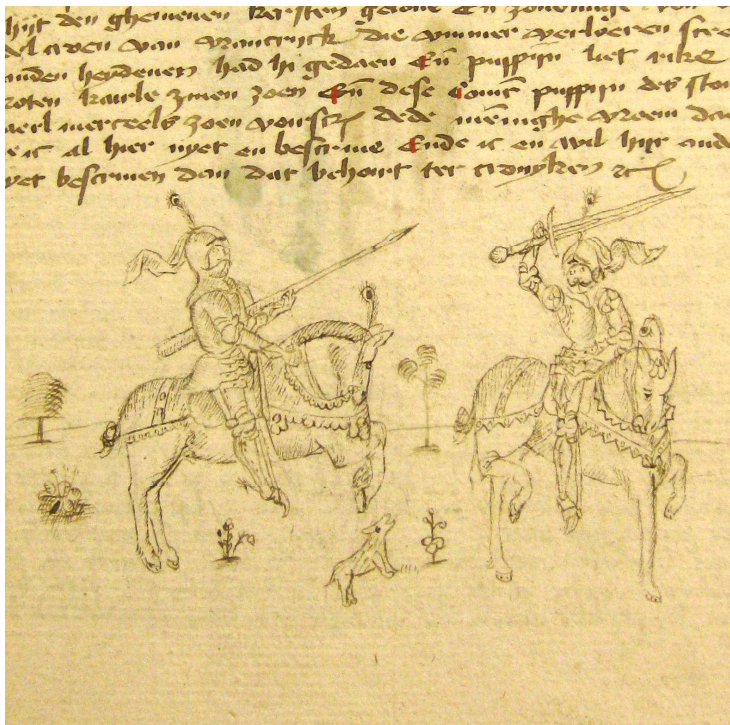 hijt den ghemenen kersten gelove En̄ zonderlinge von
van vrancryck die nummer verloeren stre
anden heydenen had hi gedaen En̄ puppijn liet rike
roten kaerle zinen zoen En̄ dese Conīc puppijn des ston
merteels zoen voirscr dede mēnighe vroem da
ic al hier nyet en bescrive Ende ic en wil hijr ande
yet bescriven dan dat behoirt ter cronyken